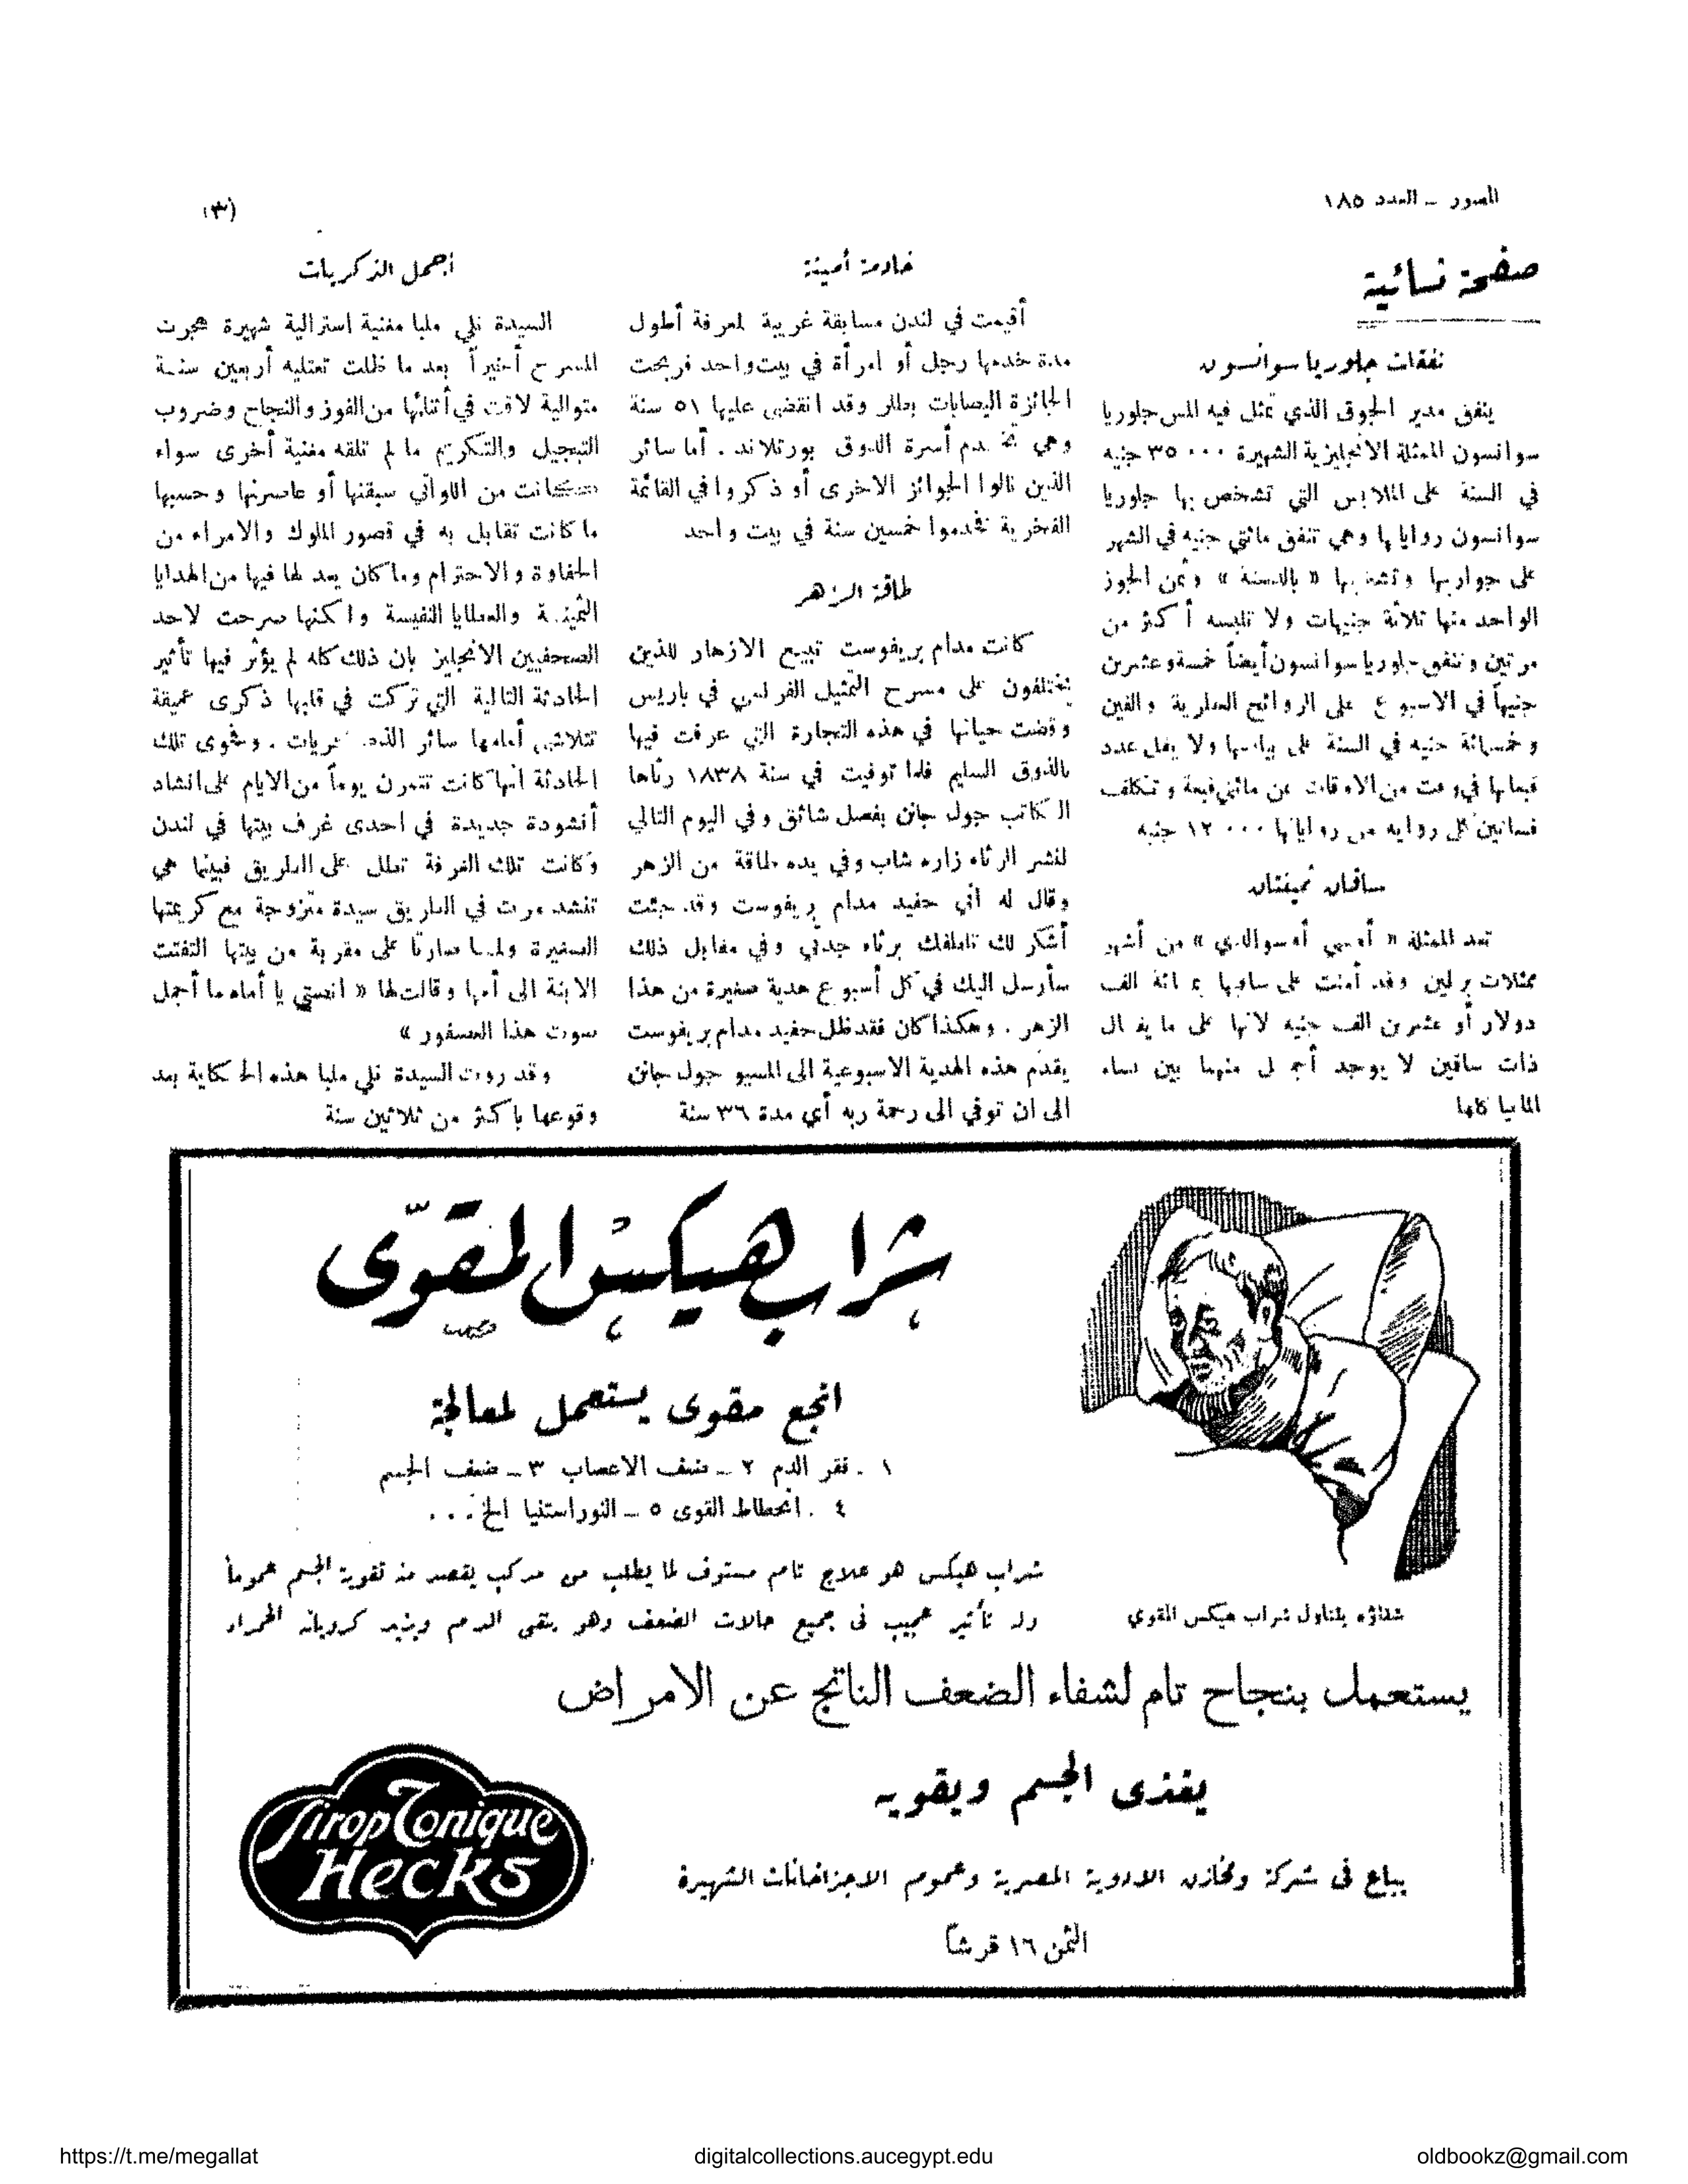 المصور ــ العدد ١٨٥
(٣)
صفحة نسائية
نفقات جلوريا سوانسون
ينفق مدير الجوق الذي تمثل فيه المس جلوريا
سوانسون الممثلة الانجليزية الشهيرة ٣٥٠٠٠ جنيه
في السنة على الملابس التي تشخص بها جلوريا
سوانسون رواياتها وهي تنفق مائتي جنيه في الشهر
على جواربها وثمن الجوز
الواحد منها ثلاثة جنيهات ولا تلبسه أكثر من
مرتين وتنفق جلوريا سوانسون أيضاً خمسة وعشرين
جنيهاً في الاسبوع على الروائح العطرية والفين
وخمسمائة جنيه في السنة على ولا يقل عدد
قبعاتها في وقت من الاوقات عن مائتي قبعة وتتكلف
فساتين كل رواية من رواياتها ١٢٠٠٠ جنيه
ساقان ثمينتان
تعد الممثلة « » من أشهر
ممثلات برلين وقد أمنت على ساقيها بمائة الف
دولار أو عشرين الف جنيه لانها على ما يقال
ذات ساقين لا يوجد أجمل منهما بين نساء
المانيا كلها
خادمة أمينة
أقيمت في لندن مسابقة غريبة لمعرفة أطول
مدة خدمها رجل أو امرأة في بيت واحد فربحت
الجائزة اليصابات بطلر وقد انقضى عليها ٥١ سنة
وهي تخدم أسرة الدوق بورتلاند . أما سائر
الذين نالوا الجوائز الاخرى أو ذكروا في القائمة
الفخرية فخدموا خمسين سنة في بيت واحد
طاقة الزهر
كانت مدام بريفوست تبيع الازهار للذين
يختلفون على مسرح التمثيل الفرنسي في باريس
وقضت حياتها في هذه التجارة التي عرفت فيها
بالذوق السليم فلما توفيت في سنة ١٨٣٨ رثاها
الكاتب جول جانن بفصل شائق وفي اليوم التالي
لنشر الرثاء زاره شاب وفي يده طاقة من الزهر
وقال له أني حفيد مدام بريفوست وقد جئت
أشكر لك تلطفك برثاء جدتي وفي مقابل ذلك
سأرسل اليك في كل أسبوع هدية صغيرة من هذا
الزهر . وهكذا كان فقد ظل حفيد مدام بريفوست
يقدم هذه الهدية الاسبوعية الى المسيو جول جانن
الى ان توفي الى رحمة ربه أي مدة ٣٦ سنة
أجمل الذكريات
السيدة نلي ملبا مغنية استرالية شهيرة هجرت
المسرح أخيراً بعد ما ظلت تعتليه أربعين سنة
متوالية لاقت في أثنائها من الفوز والنجاح وضروب
التبجيل والتكريم ما لم تلقه مغنية أخرى سواء
كانت من اللواتي سبقنها أو عاصرنها وحسبها
ما كانت تقابل به في قصور الملوك والامراء من
الحفاوة والاحترام وما كان يعد لها فيها من الهدايا
الثمينة والعطايا النفيسة ولكنها صرحت لاحد
الصحفيين الانجليز بان ذلك كله لم يؤثر فيها تأثير
الحادثة التالية التي تركت في قلبها ذكرى عميقة
تتلاشى أمامها سائر الذكريات . وفحوى تلك
الحادثة انها كانت تتمرن يوماً من الايام على انشاد
أنشودة جديدة في احدى غرف بيتها في لندن
وكانت تلك الغرفة تطل على الطريق فبينما هي
تنشد مرت في الطريق سيدة متزوجة مع كريمتها
الصغيرة ولما صارتا على مقربة من بيتها التفتت
الابنة الى أمها وقالت لها « انصتي يا أماه ما أجمل
صوت هذا العصفور »
وقد روت السيدة نلي ملبا هذه الحكاية بعد
وقوعها باكثر من ثلاثين سنة
شراب هيكس المقوّى
انجع مقوى يستعمل لمعالجة
١ ـ فقر الدم ٢ ـ ضعف الاعصاب ٣ ـ ضعف الجسم
٤ ـ انحطاط القوى ٥ ـ النوراستنيا الخ . . .
شراب هيكس هو علاج تام مستوف لما يطلب من مركب يقصد منه تقوية الجسم عموماً
وله تأثير عجيب فى جميع حالات الضعف وهو ينقى الدم ويزيد كرويانه الحمراء
شفاؤه بتناول شراب هيكس المقوي
يستعمل بنجاح تام لشفاء الضعف الناتج عن الامراض
يغذى الجسم ويقويه
Sirop Tonique
Hecks
يباع فى شركة ومخازن الادوية المصرية وعموم الاجزاخانات الشهيرة
الثمن ١٦ قرشاً
https://t.me/megallat
digitalcollections.aucegypt.edu
oldbookz@gmail.com